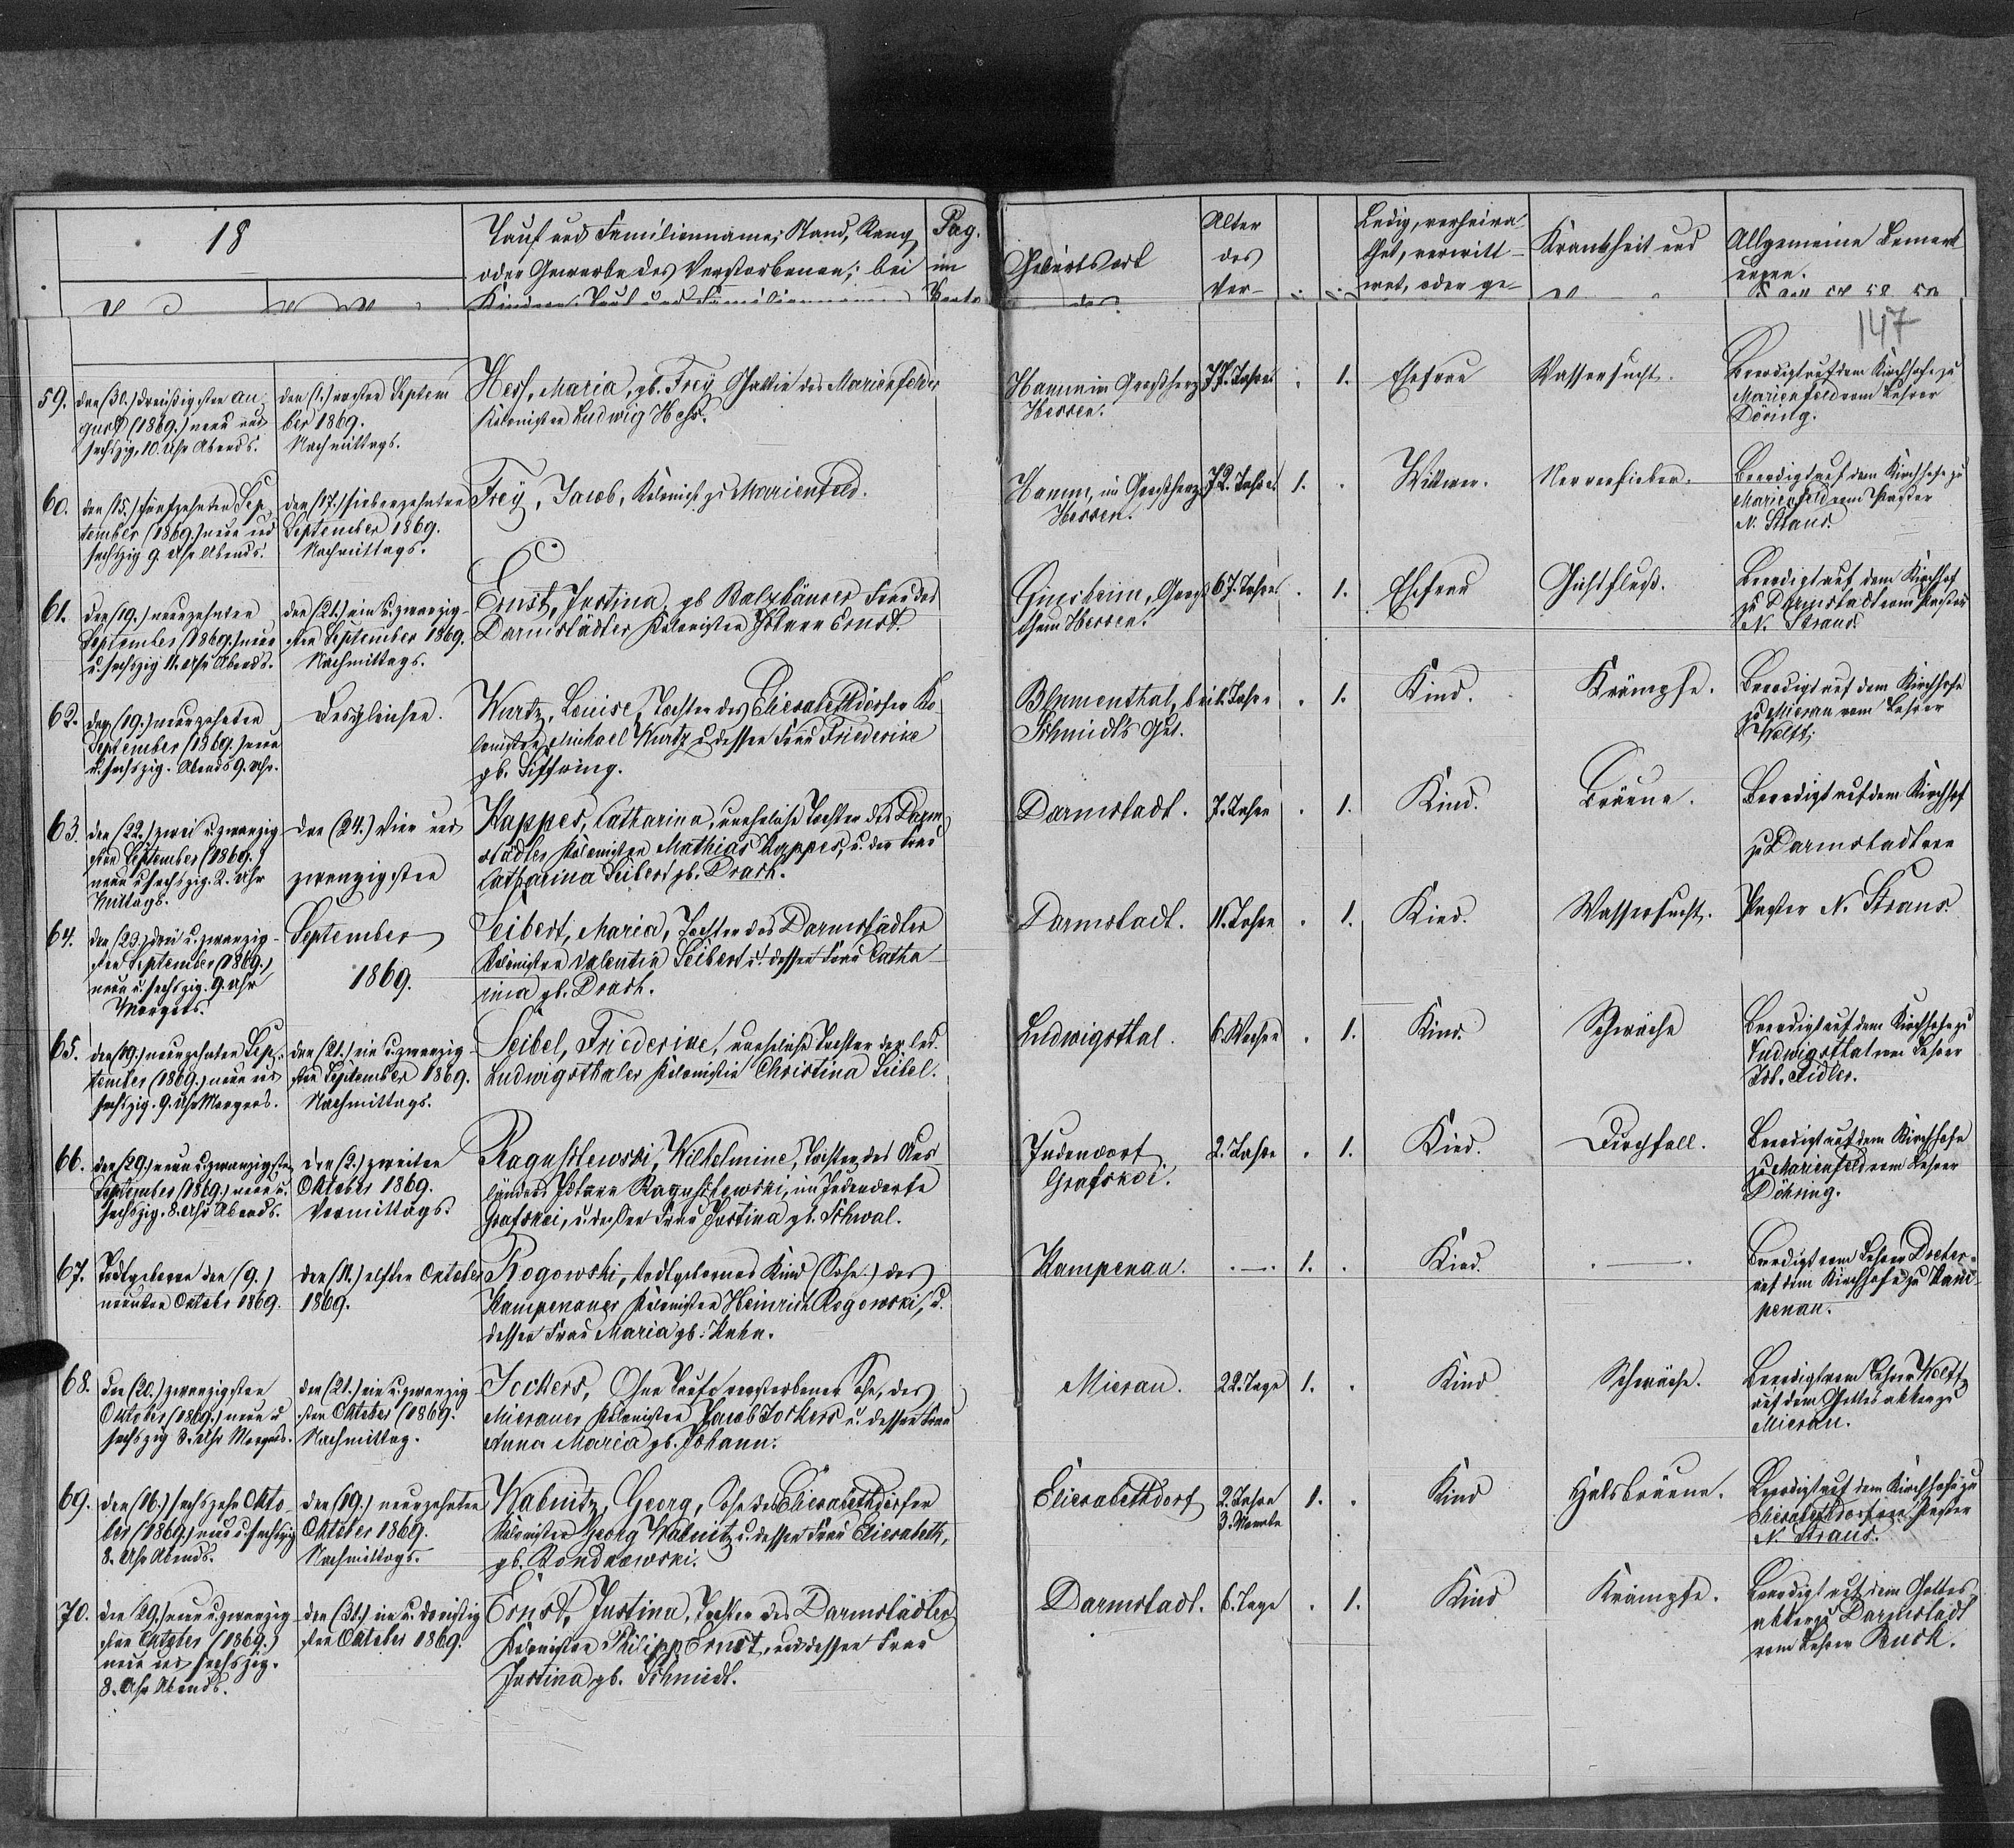 18
Tauf und Familienname, Stand, Rang
oder Gewerbe des Verstorbenen; bei
Kindern Tauf und Familiennamen
Pag.
im
Geburtsort
des
Alter
des
Ver-
Ledig, verheira-
thet, verwitt-
wet, oder ge-
Krankheit und
Allgemeine Bemerk-
ungen.
147
59.
den (30.) dreißigsten Au-
gust (1869.) neun und
sechszig, 10. Uhr Abends.
den (1.) ersten Septem
ber 1869.
Nachmittags.
Hess, Maria, gb. Frey Gattin des Marienfelder
Kolonisten Ludwig Hess.
Hamm im Großherz
Hessen.
77. Jahre
1.
Ehefrau
Wassersucht.
Beerdigt auf dem Kirchhofe zu
Marienfeld vom Lehrer
Döring.
60.
den (15.) fünfzehnten Sep
tember (1869.) neun und
sechszig 9. Uhr Abends.
den (17.) siebenzehnten
September 1869.
Nachmittags.
Frey, Jacob, Kolonist zu Marienfeld.
Hamm, im Großherz
Hessen.
72. Jahre.
1.
Wittwer.
Nervenfieber.
Beerdigt auf dem Kirchhofe zu
Marienfeld vom Pastor
N. Straus.
61.
den (19.) neunzehnten
September (1869.) neun
u. sechszig 11. Uhr Abends.
den (21.) ein u. zwanzig-
sten September 1869.
Nachmittags.
Ernst, Justina gb Balzhäuser Frau des
Darmstädter Kolonisten Johann Ernst.
Gimsheim, Groß
thum Hessen.
67. Jahre
1.
Ehefrau
Gichtfluß.
Beerdigt auf dem Kirchhof
zu Darmstadt vom Pastor
N. Straus.
62.
den (19.) neunzehnten
September (1869.) neun
u. sechszig. Abends 9. Uhr.
Desgleichen.
Wurtz, Louise, Tochter des Eliesabethdörfer Ko-
lonisten Michael Wurtz u. dessen Frau Friederike
gb.
Blumenthal, bei
Schmidts Gut.
Jahre
1.
Kind.
Krämpfe.
Beerdigt auf dem Kirchhofe
zu Mierau vom Lehrer
63.
den (22.) zwei u. zwanzig
sten September (1869.)
neun u. sechszig. 2. Uhr
Mittags.
den (24.) vier und
zwanzigsten
Kappes, Catharina, uneheliche Tochter des Darm
städter Kolonisten Mathias Kappes, u. der Frau
Catharina Seibert gb. Drath.
Darmstadt.
7. Jahre
1.
Kind.
Bräune.
Beerdigt auf dem Kirchhof
zu Darmstadt vom
64.
den (23.) drei u. zwanzig-
sten September (1869.)
neun u. sechszig. 9. Uhr
Morgens.
September
1869.
Seibert, Maria, Tochter des Darmstädter
Kolonisten Valentin Seibert u. dessen Frau Catha
rina gb. Drath.
Darmstadt.
11. Jahre
1.
Kind.
Wassersucht.
Pastor N. Straus.
65.
den (19.) neunzehnten Sep-
tember (1869.) neun und
sechszig. 9. Uhr Morgens.
den (21.) ein u. zwanzig
sten September 1869.
Nachmittags.
Seibel, Friederike, uneheliche Tochter der led.
Ludwigsthaler Kolonistin Christina Seibel.
Ludwigsthal.
6. Wochen
1.
Kind.
Schwäche
Beerdigt auf dem Kirchhofe zu
Ludwigsthal vom Lehrer
Joh. Fidler.
66.
den (29.) neun u. zwanzigsten
September (1869.) neun u.
sechszig. 8. Uhr Abends.
den (2.) zweiten
Oktober 1869.
Vormittags.
Ragustlewski, Wilhelmine, Tochter des Aus
länders Johann Ragustlewski, im Judendorfe
Grafskoi, u. dessen Frau Justina gb. Schwal.
Judendorf
Grafskoi.
2. Jahre
1.
Kind.
Durchfall.
Beerdigt auf dem Kirchhofe
zu Marienfeld vom Lehrer
Döhring.
67.
Todtgeboren den (9.)
neunten Oktober 1869.
den (11.) elften Oktober
1869.
Rogowski, todtgebornes Kind (Sohn) des
Kampenauer Kolonisten Heinrich Rogowski, u.
dessen Frau Maria gb. Kuhn.
Kampenau.
—
1.
Kind.
—
Beerdigt vom Lehrer Docter
auf dem Kirchhofe zu Kam-
penau.
68.
den (20.) zwanzigsten
Oktober (1869.) neun u
sechszig 8. Uhr Morgens.
den (21.) ein u. zwanzig
sten Oktober (1869.
Nachmittag.
Jockers, Ohne Taufe verstorbener Sohn, des
Mierauer Kolonisten Jacob Jockers u. dessen Frau
Anna Maria gb. Johann.
Mierau.
22. Tage
1.
Kind
Schwäche.
Beerdigt vom Lehrer
auf dem Gottesakker zu
Mierau.
69.
den (16.) sechszehn Okto-
ber (1869.) neun u. sechszig
8. Uhr Abends.
den (19.) neunzehnten
Oktober 1869.
Nachmittags.
Wabnitz, Georg, Sohn des Eliesabethdörfer
Kolonisten Georg Wabnitz u. dessen Frau Eliesabeth,
gb. Rondkowski.
Eliesabethdorf
2. Jahre
3. Monate
1.
Kind
Halsbräune.
Beerdigt auf dem Kirchhofe zu
Eliesabethdorf vom Pastor
N. Straus.
70.
den (29.) neun u. zwanzig
sten Oktober (1869.)
neun und sechszig.
8. Uhr Abends.
den (31.) ein u. dreißig
sten Oktober 1869.
Ernst, Justina, Tochter des Darmstädter
Kolonisten Philipp Ernst, und dessen Frau
Justina gb. Schmidt.
Darmstadt.
6. Tage
1.
Kind
Krämpfe.
Beerdigt auf dem Gottes
akker zu Darmstadt
vom Lehrer Buch.